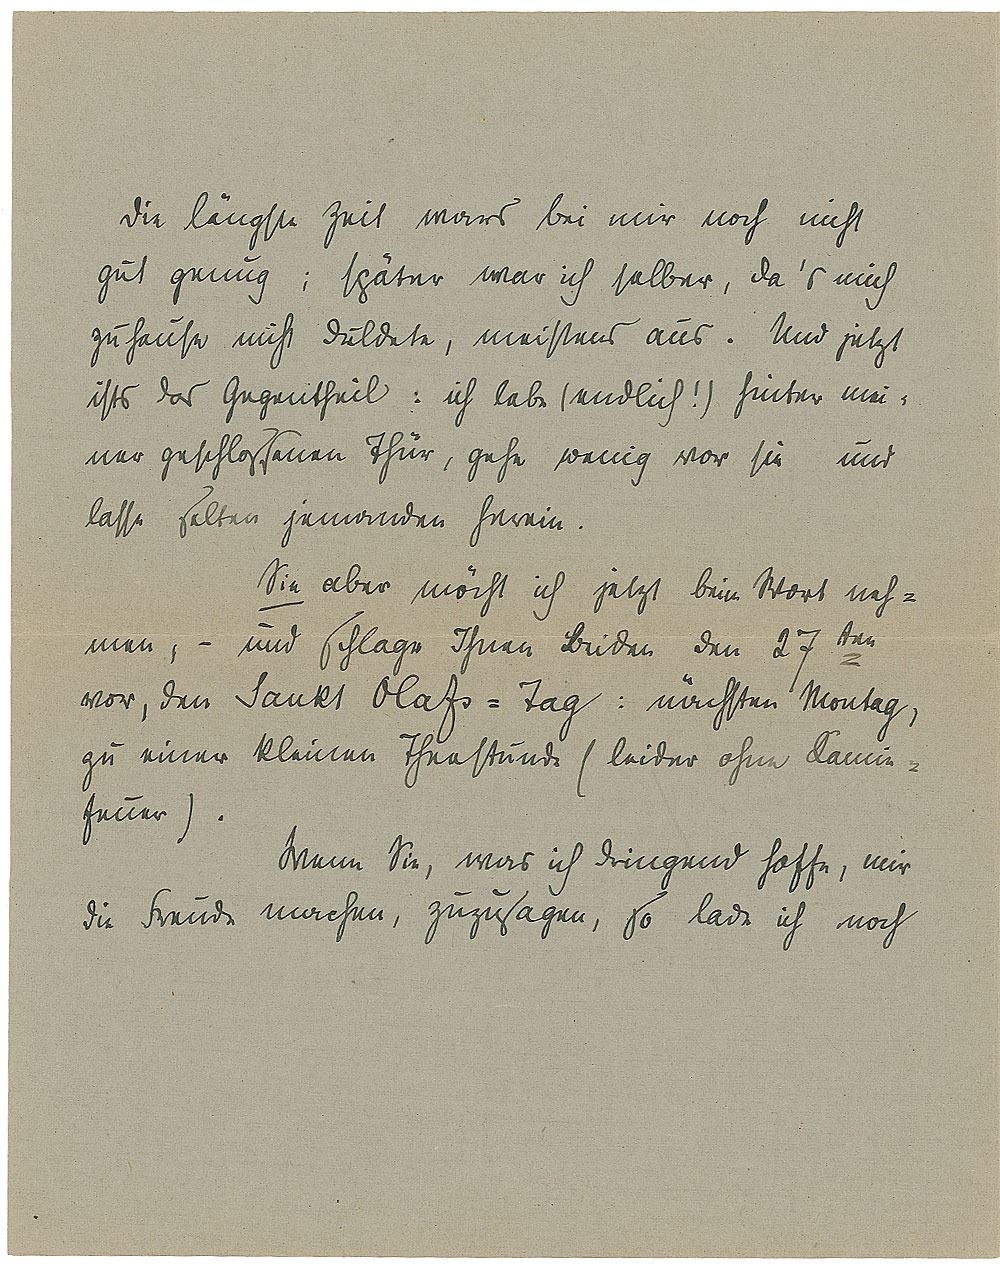 die längste Zeit wars bei mir noch nicht
gut genug ; später war ich selber, da's mich
zuhause nicht duldete, meistens aus. Und jetzt
ists das Gegentheil : ich lebe (endlich!) hinter mei-
ner geschlossenen Thür, gehe wenig vor sie und
lasse selten jemanden herein.
Sie aber möcht ich jetzt beim Wort neh=
men, – und schlage Ihnen Beiden den 27ten
vor, den Sankt Olafs=Tag : nächsten Montag,
zu einer kleinen Theestunde (leider ohne Kamin=
feuer) .
Wenn Sie, was ich dringend hoffe, mir
die Freude machen, zuzusagen, so lade ich noch